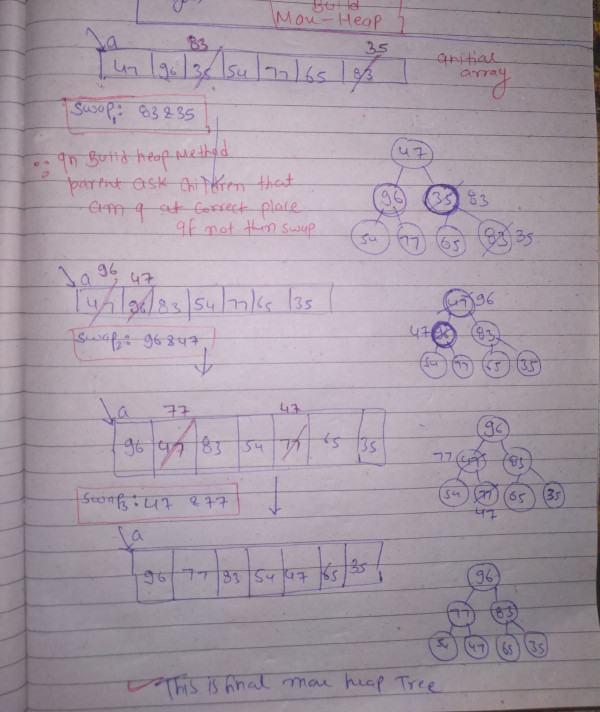 Build
Max-Heap
a 83 35
47 96 35 54 77 65 83
initial
array
Swap1: 83 & 35
In Build heap Method
parent ask children that
am I at correct place
If not then swap
47
96 35 83
54 77 65 83 35
a 96 47
47 96 83 54 77 65 35
Swap2: 96 & 47
47 96
47 96 83
54 77 65 35
a 77 47
96 47 83 54 77 65 35
Swap3: 47 & 77
96
77 47 83
54 77 65 35
47
a
96 77 83 54 47 65 35
96
77 83
54 47 65 35
This is final max heap Tree